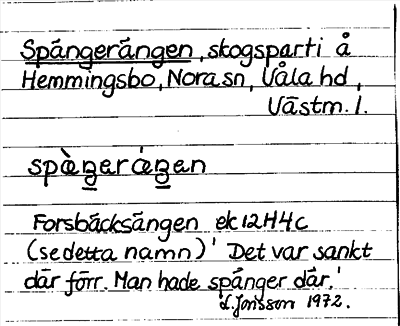 Spångerängen, skogsparti å
Hemmingsbo, Nora sn, Våla hd,
Västm. l.
spæ̀ŋerǽŋen
Forsbäcksängen ek 12H4c
(se detta namn) ' Det var sankt
där förr. Man hade spånger där.'
Jonsson 1972.